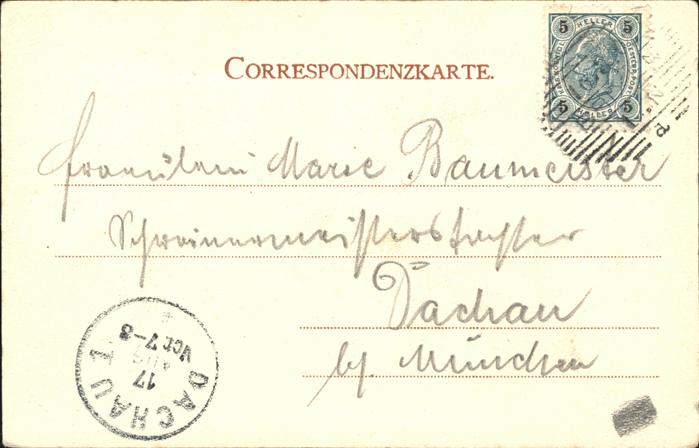 CORRESPONDENZKARTE.
5 HELLER 5
5 HELLER 5
Fraeulein Marie Baumeister
Schreinermeisterstochter
Dachau
by München
DACHAU 1
17
AUG
Vor 7-8